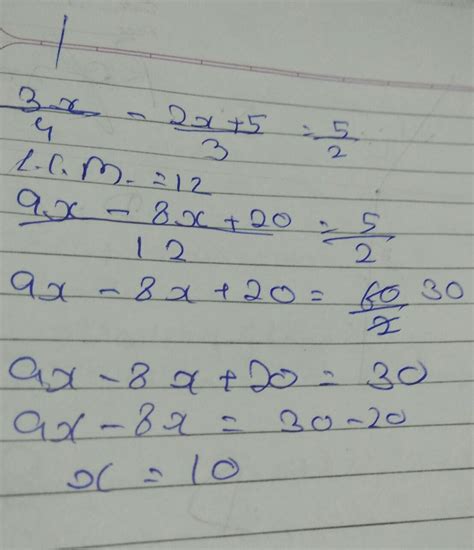 3x/4 - 2x+5/3 = 5/2
L.C.M. = 12
9x - 8x + 20/12 = 5/2
9x - 8x + 20 = 60/2 30
9x - 8x + 20 = 30
9x - 8x = 30 - 20
x = 10